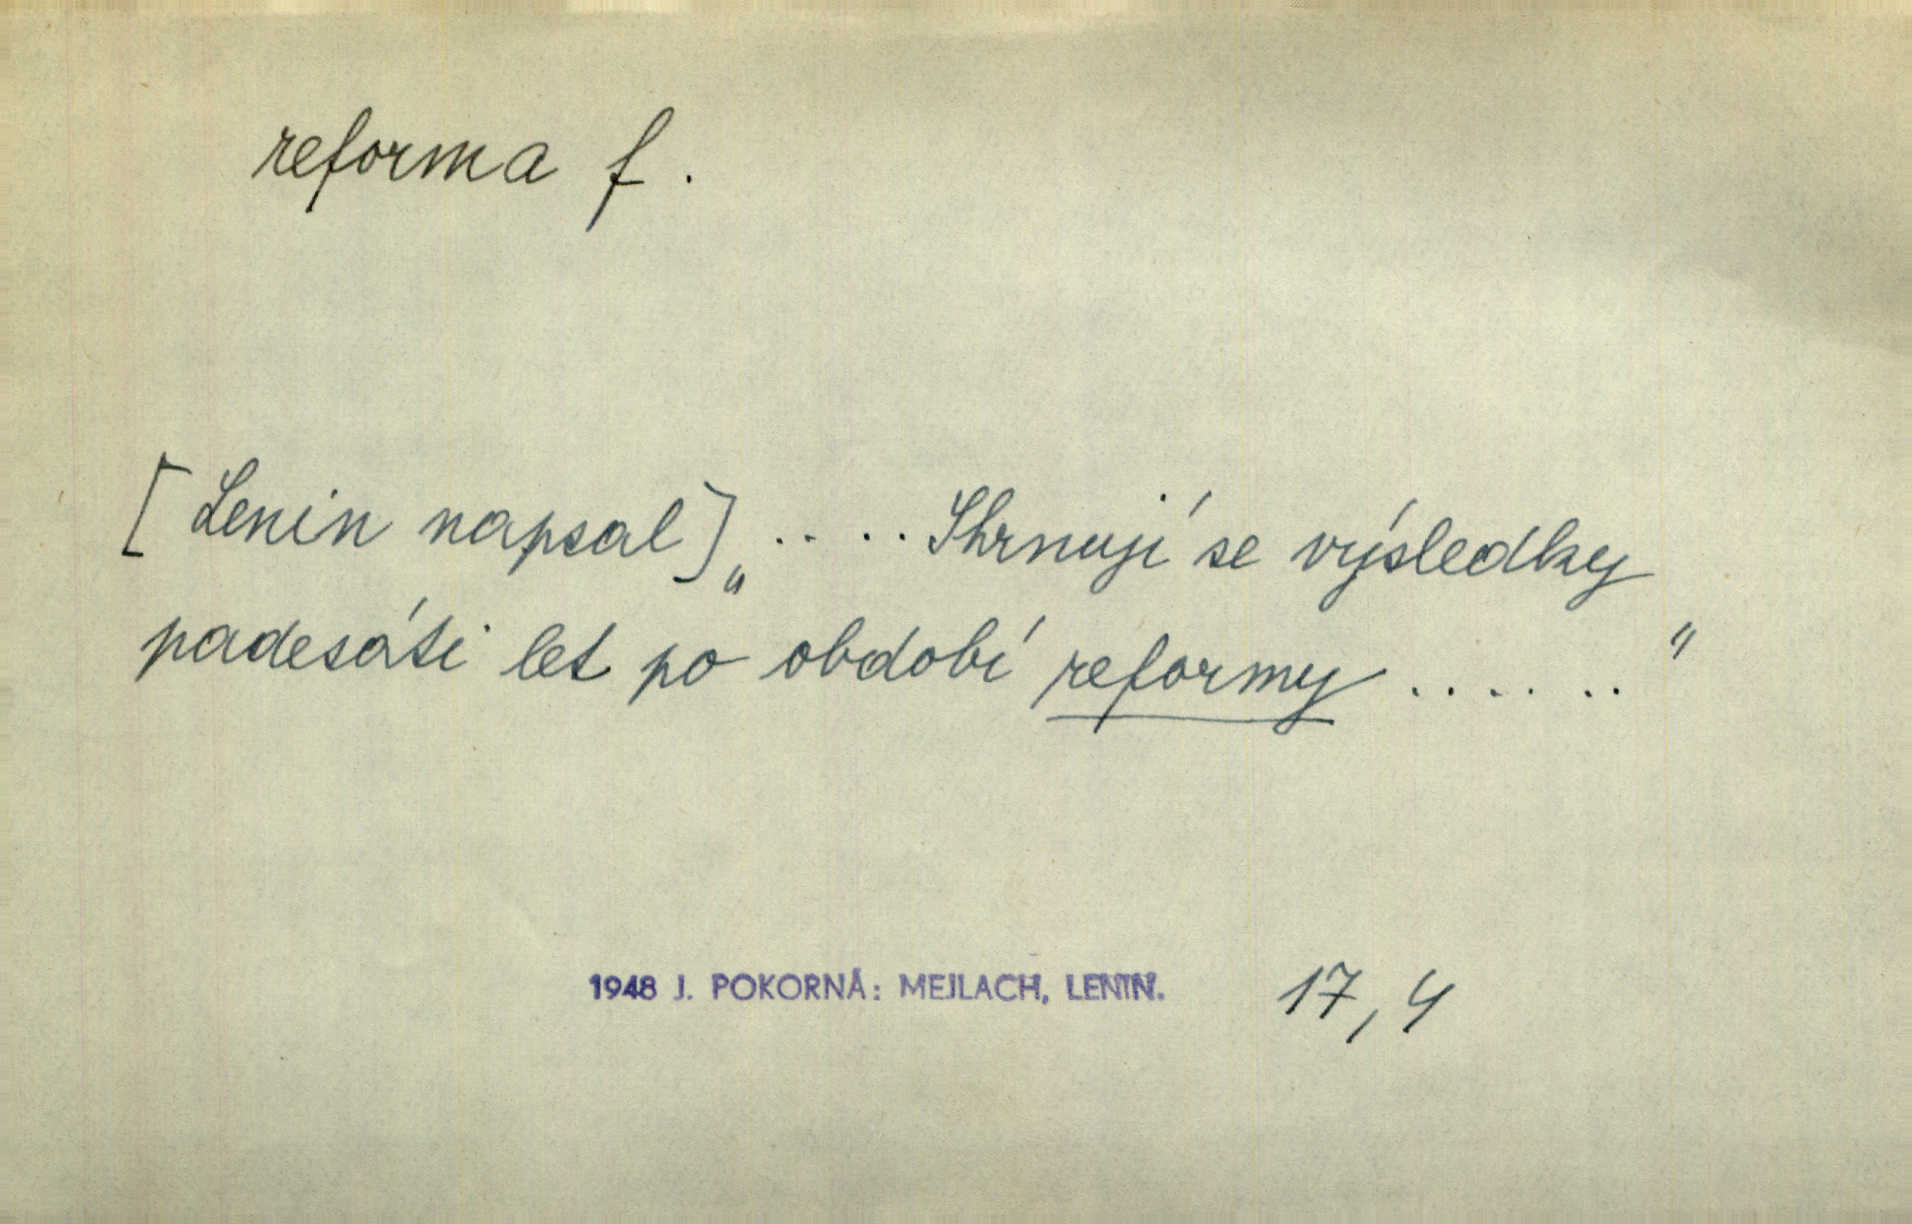 reforma f.
[Lenin napsal] „.. .. Shrnují se výsledky
padesáti let po období reformy ..... .."
1948 J. POKORNÁ: MEJLACH, LENIN. 17,4